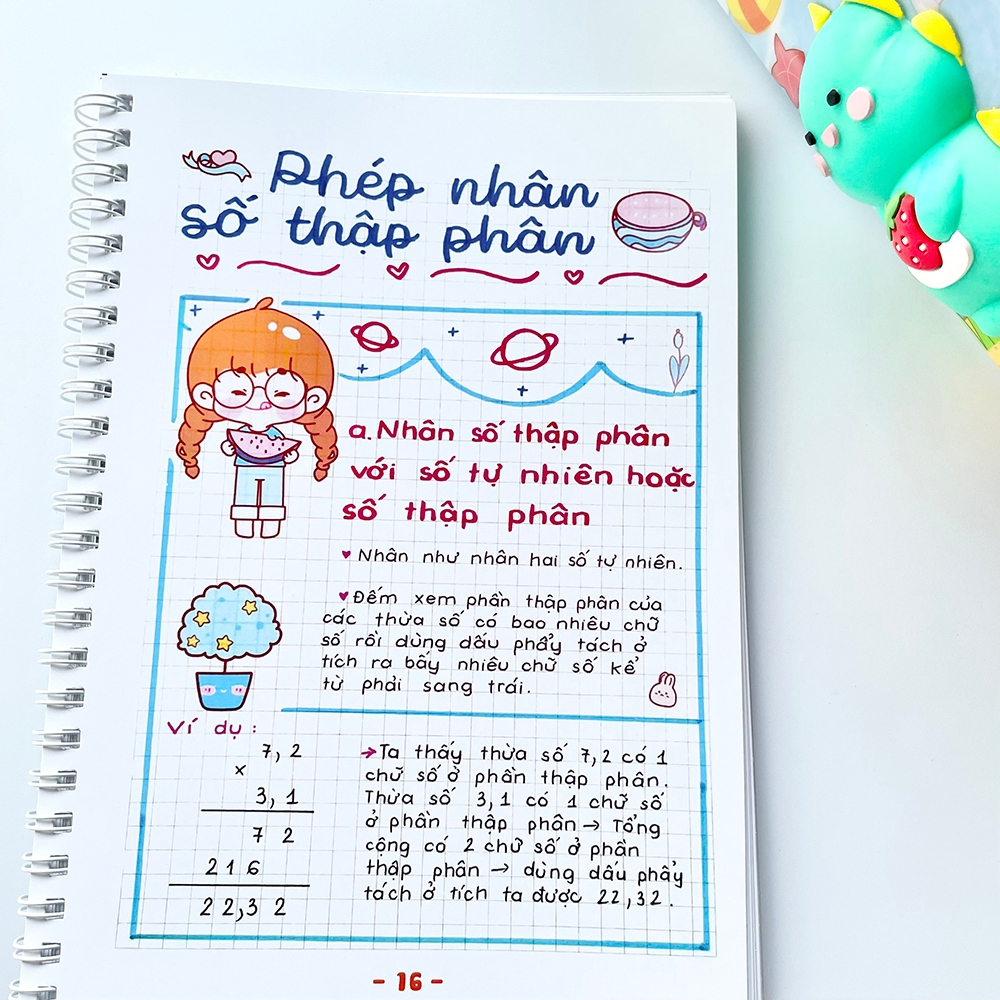 Phép nhân
số thập phân
a. Nhân số thập phân
với số tự nhiên hoặc
số thập phân
♥ Nhân như nhân hai số tự nhiên.
♥ Đếm xem phần thập phân của
các thừa số có bao nhiêu chữ
số rồi dùng dấu phẩy tách ở
tích ra bấy nhiêu chữ số kể
từ phải sang trái.
Ví dụ :
7,2
×
3,1
7 2
2 1 6
2 2,3 2
→ Ta thấy thừa số 7,2 có 1
chữ số ở phần thập phân.
Thừa số 3,1 có 1 chữ số
ở phần thập phân → Tổng
cộng có 2 chữ số ở phần
thập phân → dùng dấu phẩy
tách ở tích ta được 22,32.
- 16 -